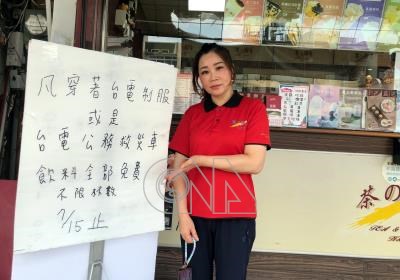 凡穿著台電制服
或是
台電公務救災車
飲料全部免費
不限杯數
7/15止
CNA
茶の
TEA &